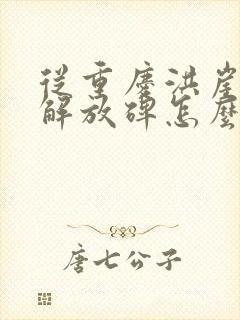 從重慶洪崖
解放碑怎麼
唐七公子